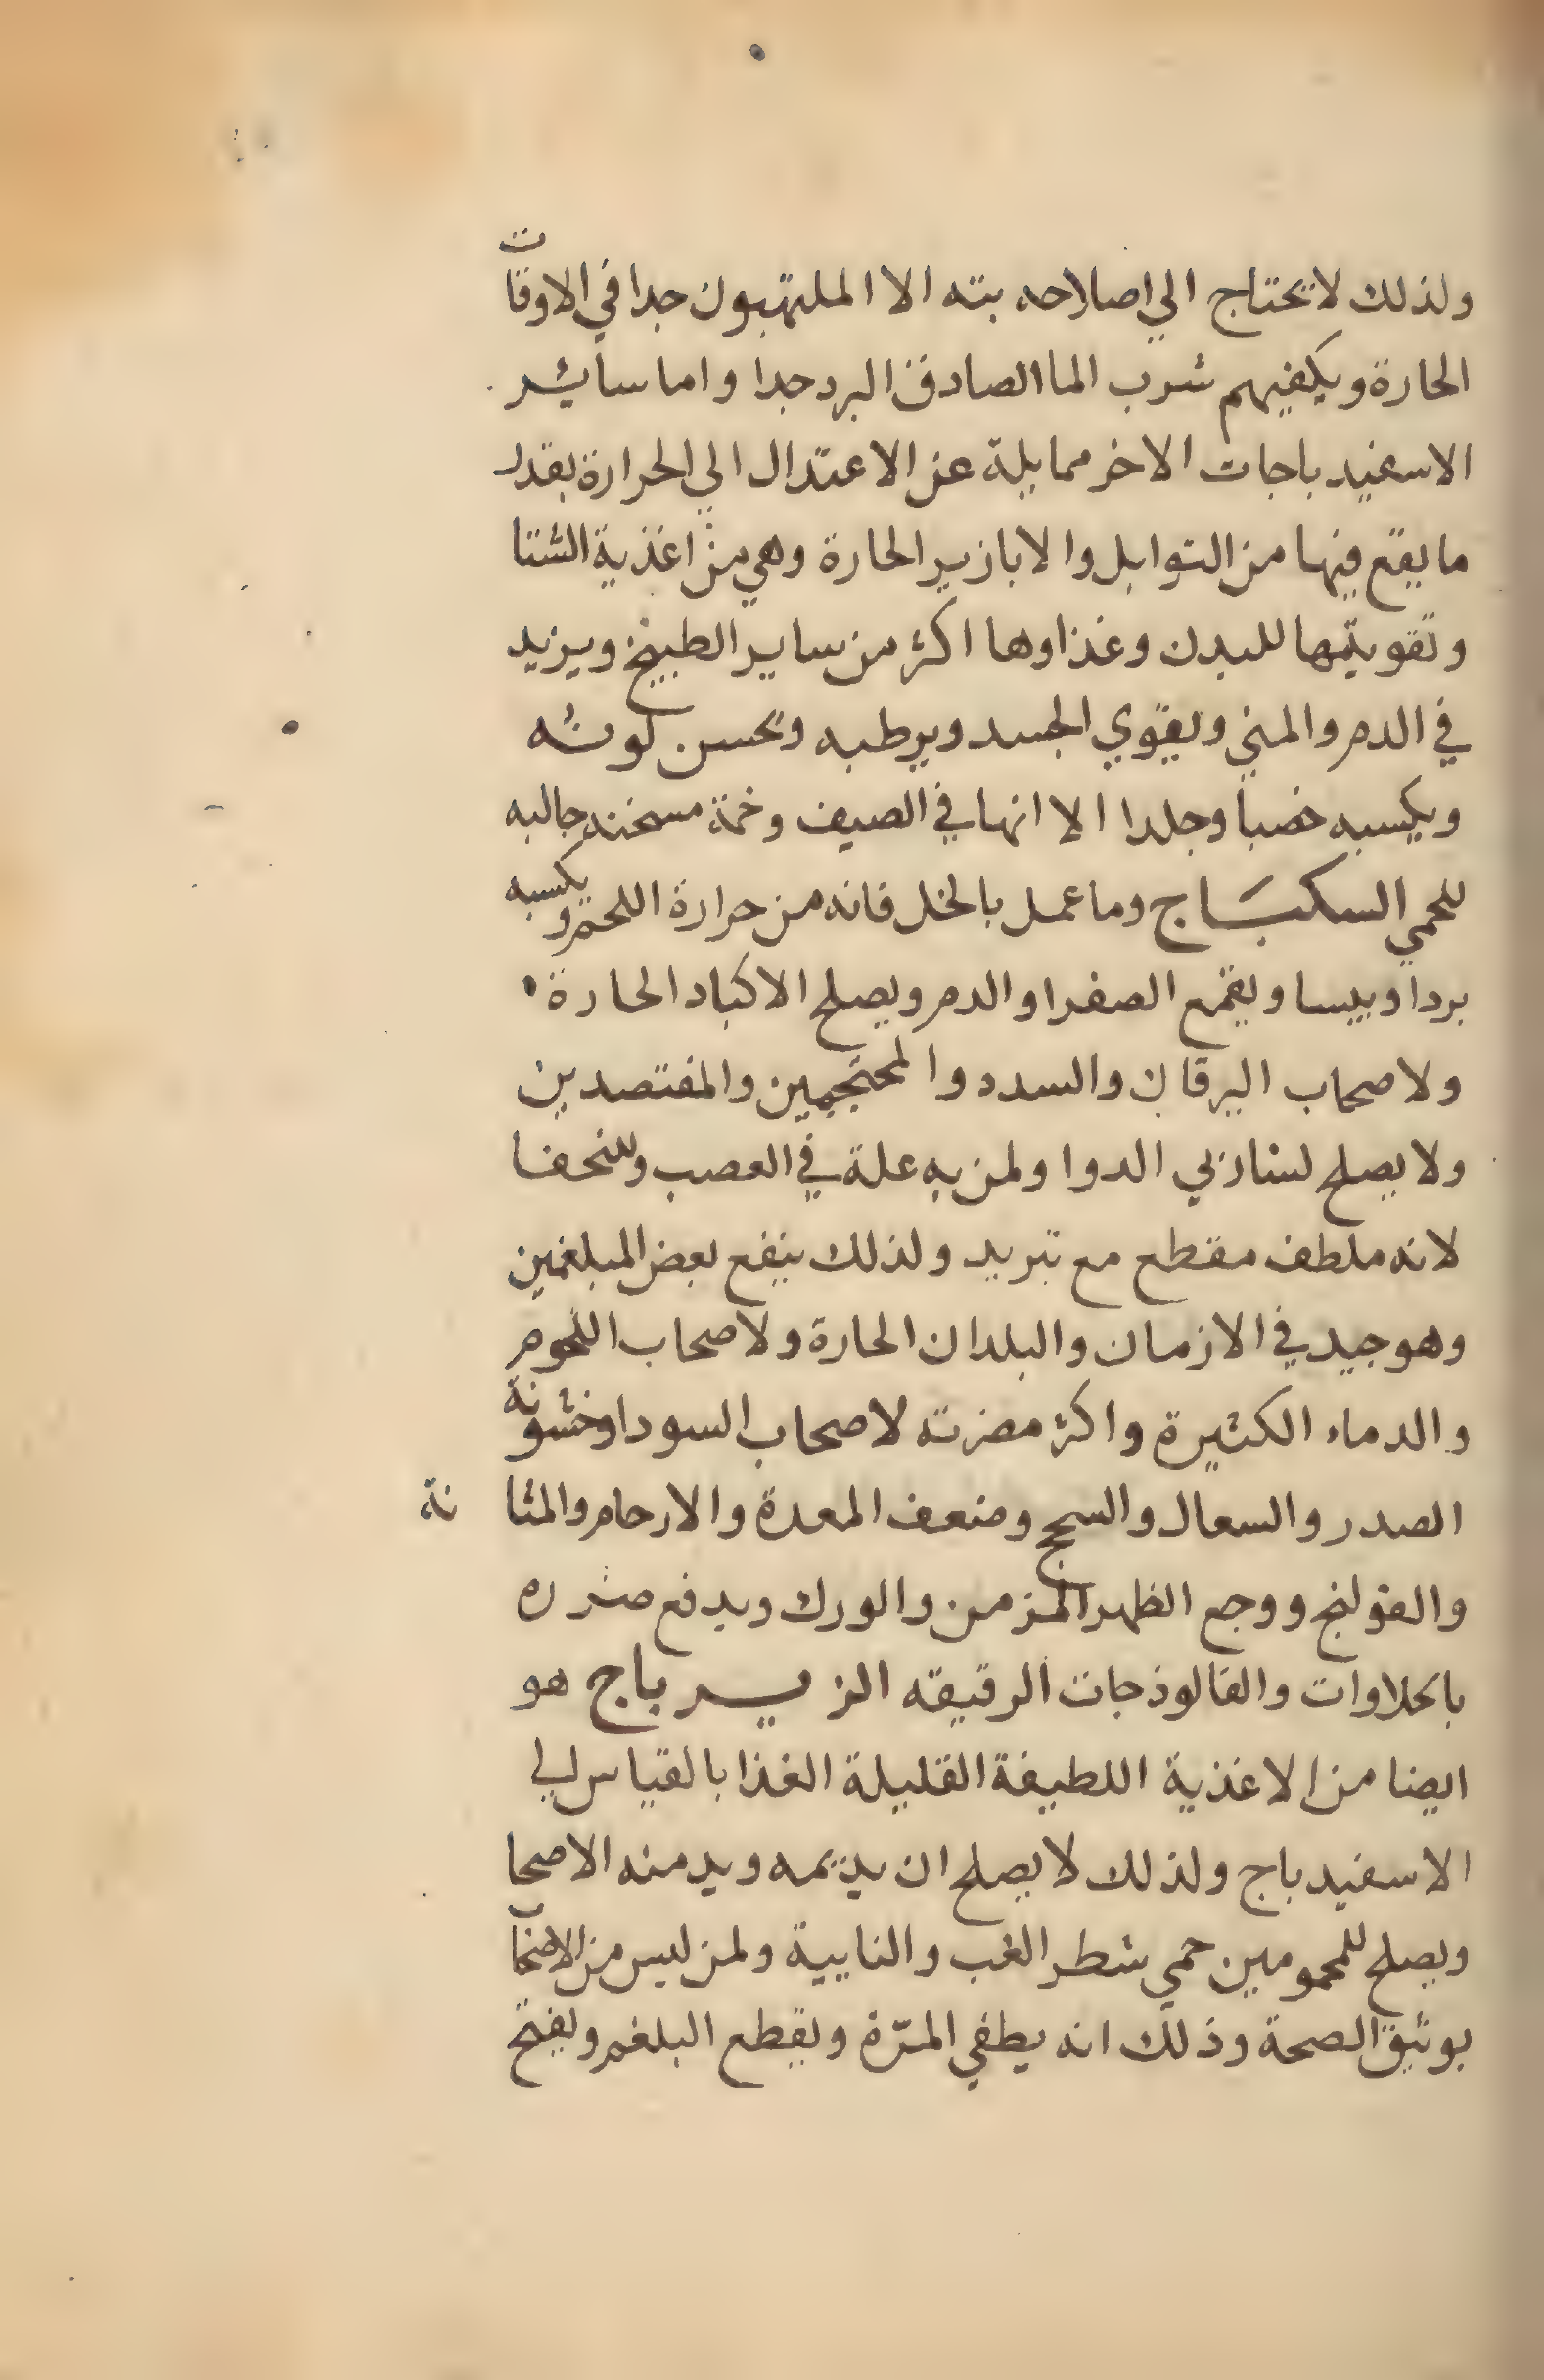 ولذلك لا تحتاج الي اصلاحه بته الا الملتهبون جدا في الاوقات
الحارة ويكفيهم شرب الما الصادق البرد جدا واما سائر
الاسفيد باجات الاخر مما يلة عن الاعتدال الي الحرارة بقدر
ما يقع فيها من التوابل والابازير الحارة وهي من اغذية الشتا
وتقويتها للبدن وغذاوها اكثر من ساير الطبيخ ويزيد
في الدم والمني ويقوي الجسد ويرطبه وتحسن لونه
ويكسبه خصبا وجلدا الا انها في الصيف وخمة مسخنه جالبه
للحمي السكباج وما عمل بالخل فانه من حرارة اللحم ويكسبه
بردا ويبسا ويقمع الصفرا والدم ويصلح الاكباد الحارة
ولاصحاب اليرقان والسدد والمحتجمين والمفتصدين
ولا يصلح لشاربي الدوا ولمن به علة في العصب وللنحفا
لانه ملطف مقطع مع تبريد ولذلك ينفع بعض المبلغمين
وهو جيد في الازمان والبلدان الحارة ولاصحاب اللحوم
والدماء الكثيرة واكثر مضرته لاصحاب السودا وخشونة
الصدر والسعال والسحج وضعف المعدة والارحام والمثانة
والقولنج ووجع الظهر المزمن والورك ويدفع ضرره
بالحلاوات والفالوذجات الرقيقه الزيرباج هو
ايضا من الاغذية اللطيفة القليلة الغذا بالقياس الي
الاسفيد باج ولذلك لا يصلح ان يديمه ويدمنه الاصحا
ويصلح للمحمومين حمي شطر الغب والنايبة ولمن ليس من الاصحا
بوثيق الصحة وذلك انه يطفي المرّة ويقطع البلغم ويفتح